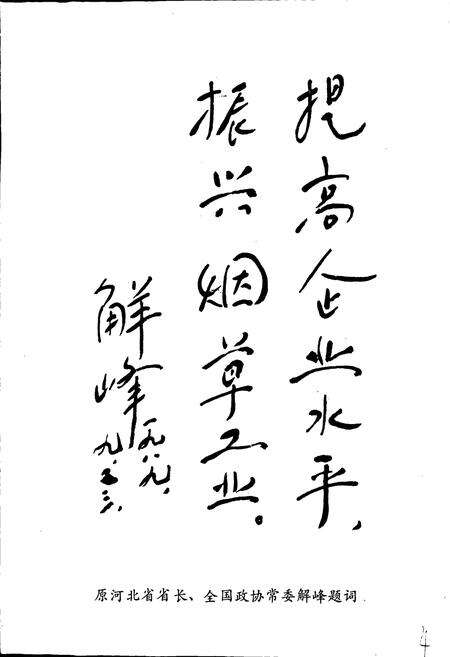 提高企业水平，
振兴烟草工业。
解峰
一九八九、
九、
原河北省省长、全国政协常委解峰题词
4